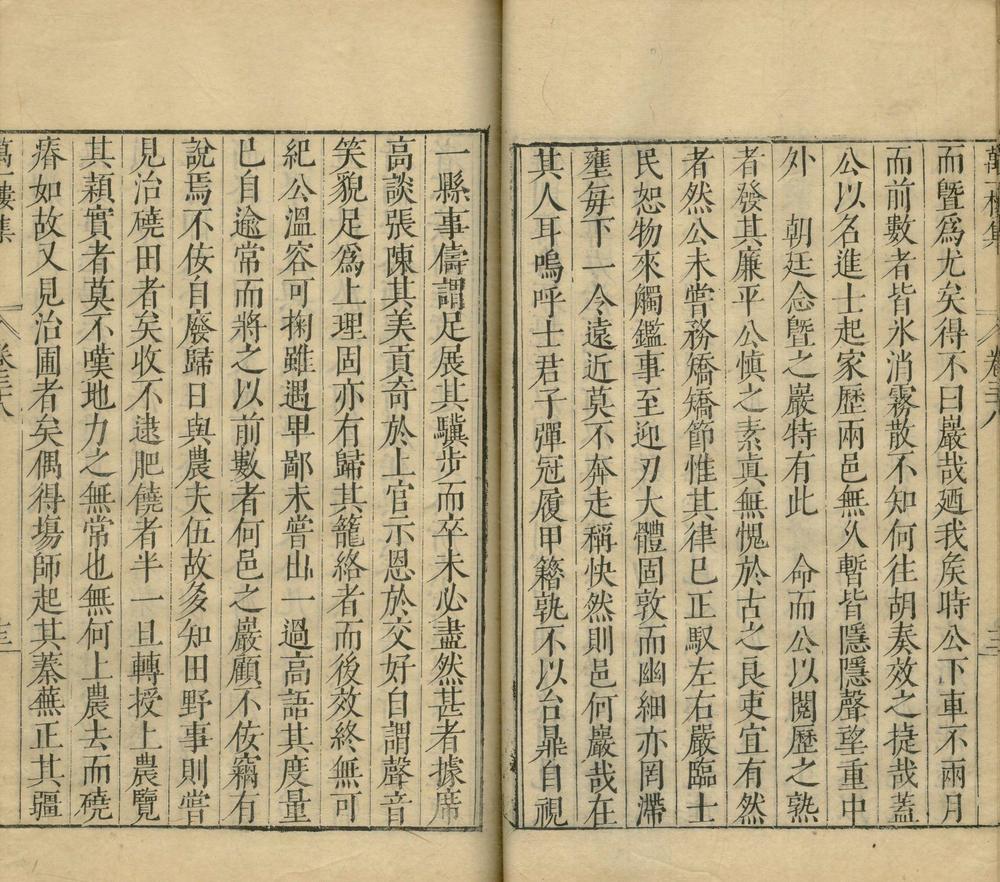 萬一樓集 卷三十八 三
而曁爲尤矣得不曰嚴哉廼我矦時公下車不兩月
而前數者皆氷消霧散不知何往胡奏效之捷哉蓋
公以名進士起家歷兩邑無久暫皆隱隱聲望重中
外 朝廷念曁之嚴特有此 命而公以閱歷之熟
者發其廉平公慎之素真無愧於古之良吏宜有然
者然公未嘗務矯矯節惟其律巳正馭左右嚴臨士
民恕物來觸鑑事至迎刃大體固敦而幽細亦罔滯
壅每下一令遠近莫不奔走稱快然則邑何嚴哉在
其人耳嗚呼士君子彈冠履甲籍孰不以台鼎自視
一縣事儔謂足展其驥步而卒未必盡然甚者據席
高談張陳其美貢奇於上官示恩於交好自謂聲音
笑貌足爲上理固亦有歸其籠絡者而後效終無可
紀公溫容可掬雖遇卑鄙未嘗出一過高語其度量
巳自逾常而將之以前數者何邑之嚴顧不佞竊有
說焉不佞自廢歸日與農夫伍故多知田野事則嘗
見治磽田者矣收不逮肥饒者半一旦轉授上農覽
其穎實者莫不嘆地力之無常也無何上農去而磽
瘠如故又見治圃者矣偶得塲師起其蓁蕪正其疆
萬一樓集 卷三十八 三